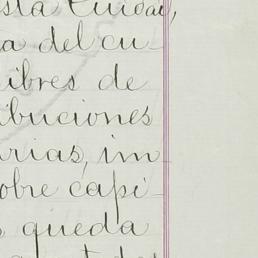 sta Ciudad,
a del cu-
libres de
ibuciones
arias, im
obre capi-
s queda